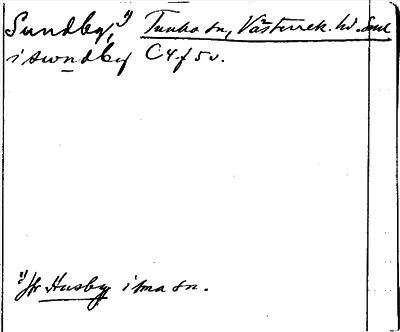 Sundby,¹⁾ Tuna sn, Västerrek. hd. Sml
i swndby C4 f 50.
¹⁾ Jfr Husby i ma sn.